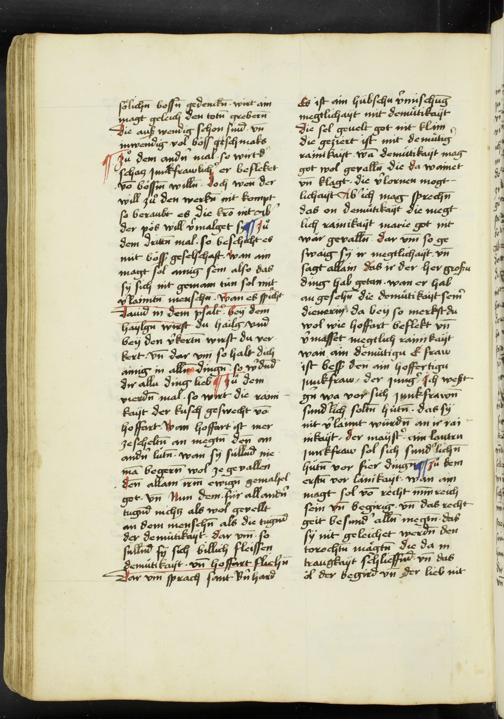 sölichn bössn gedenckn wirt ain
magt geleich den totn grebern
Die auß wendig schon sind vn
inwendig vol böß geschmaks
Zu dem andn mal so wirt d
schatz junkfrawlich er beflekt
vo bössm willn Doch wen der
will zu den werkn nit kompt
so beraubt es die kro nit ob
der pös will vmalget sy Zu
dem dritten mal so beschicht es
mit böss geselschaft wan am
magt sol ainig sein also das
sy sich nit gemain tün sol mit
vlaimten menschn Wan es spricht
Dauid in dem psalt bey dem
haylgn wirst du hailg vnd
bey den vkertn wirst du ver
kert vn dar vm so halt dich
ainig in alln dingn so wdnd
dir alln ding lieb Zu dem
vierdn mal so wirt die raini
kayt der kusch geswecht vo
hoffart Wan hoffart ist mer
zescheltn an megtn den an
andn lutn wan sy sullnd nie
ma begern wol ze gevallen
den allain irm ewign gemahel
got vn Nun dem hír all andn
tugnd nichtz als wol gevellt
an dem menschn als die tugnd
der demütikayt dar vm so
sullnd sy sich billich fleissen
demütikayt vn hoffart fliehn
Dar vm sprach sant Bnhard
Es ist ain hubschn vmischug
megtlichayt mit demütikayt
die sel gevelt got nit klain
die geziert ist mit demütig
rainikayt wa demütikayt mag
got wol gevalln die da wainet
vn klagt die vlornen mogt
lichayt Ab ich mag sprechn
das on demütikayt die megt
lich rainikayt marie got nit
wär gevalln dar vm so ge
swaig sy ir megtlichayt vn
sagt allain das ir der her grosn
ding hab getan wan er hab
an gesehn die demütikayt seinr
dienerin da bey so merkst du
wol wie hoffart beflekt vn
vmasset megtlich rainikayt
wan ain demütigu E fraw
ist bess den ain hoffertigu
junkfraw der jung Ich west
gn wa vor sich junkfrawn
sundlich soltn hütn das sy
nit vlaimt würdn an ir rai
nikayt der mayst ain lautru
junkfraw sol sich sundlichn
hütn vor fier dingn Zu dem
erstn vor lainikayt wan ain
magt sol vo recht nin reich
sein vn begirig vn das recht
geit besund alln megtn das
sy nit geleichet werdn den
torochtn mägtn die da in
traugkayt schlieffnd vn das
öl der begird vn der lieb nit